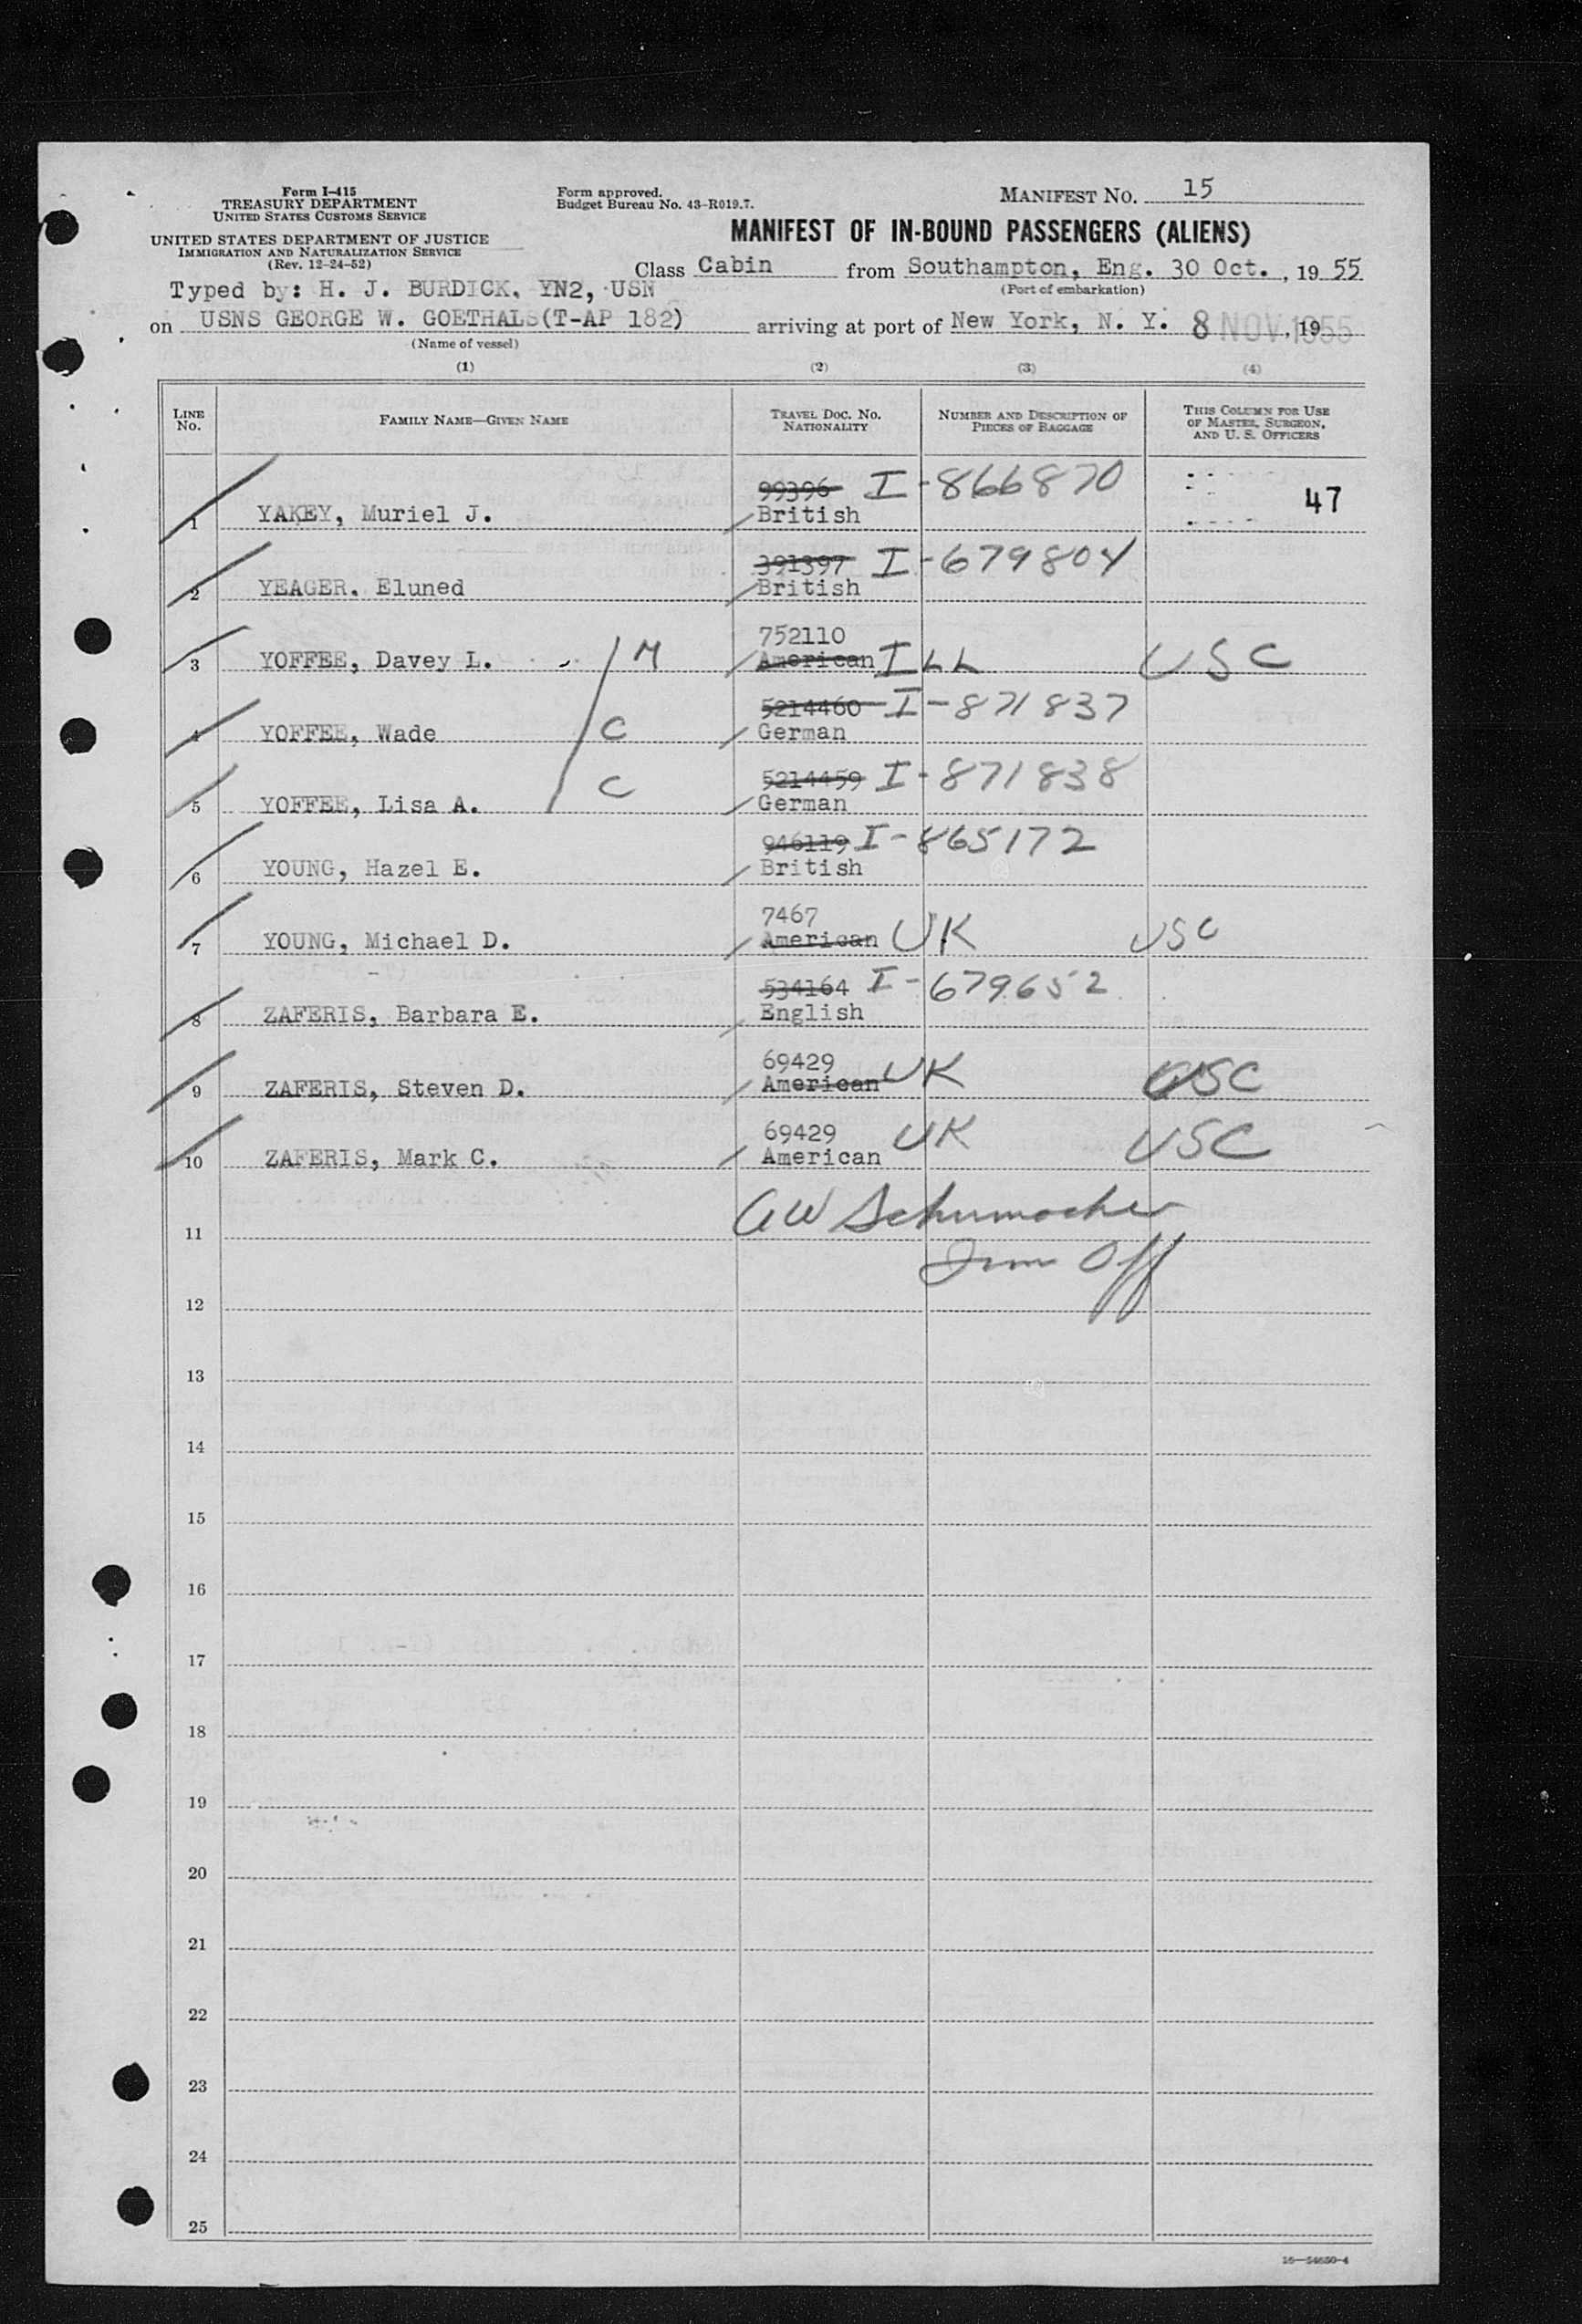 Form I-415
TREASURY DEPARTMENT
UNITED STATES CUSTOMS SERVICE
UNITED STATES DEPARTMENT OF JUSTICE
IMMIGRATION AND NATURALIZATION SERVICE
(Rev. 12-24-52)
Form approved.
Budget Bureau No. 43-R019.7.
MANIFEST No. 15
MANIFEST OF IN-BOUND PASSENGERS (ALIENS)
Class Cabin from Southampton, Eng. 30 Oct., 1955
(Port of embarkation)
Typed by: H. J. BURDICK, YN2, USN
on USNS GEORGE W. GOETHALS(T-AP 182) arriving at port of New York, N. Y. 8 NOV 1955, 19
(Name of vessel)
(1) (2) (3) (4)
LINE No. FAMILY NAME—GIVEN NAME TRAVEL DOC. NO. NATIONALITY NUMBER AND DESCRIPTION OF PIECES OF BAGGAGE THIS COLUMN FOR USE OF MASTER, SURGEON, AND U. S. OFFICERS
99396 I-866870
47
1 YAKEY, Muriel J. British
391397 I-679804
2 YEAGER, Eluned British
752110
3 YOFFEE, Davey L. M American ILL USC
5214460 I-871837
4 YOFFEE, Wade C German
5214459 I-871838
5 YOFFEE, Lisa A. C German
946119 I-865172
6 YOUNG, Hazel E. British
7467
7 YOUNG, Michael D. American UK USC
534164 I-679652
8 ZAFERIS, Barbara E. English
69429
9 ZAFERIS, Steven D. American UK USC
69429 UK USC
10 ZAFERIS, Mark C. American
AW Schumacher
11
Imm Off
12
13
14
15
16
17
18
19
20
21
22
23
24
25
16—54650-4